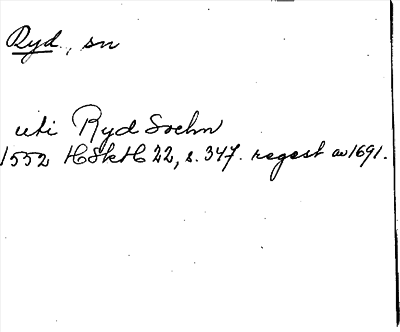 Ryd., sn
uti Ryd Sochn
1552 HSkH 22, s. 347. regest av 1691.